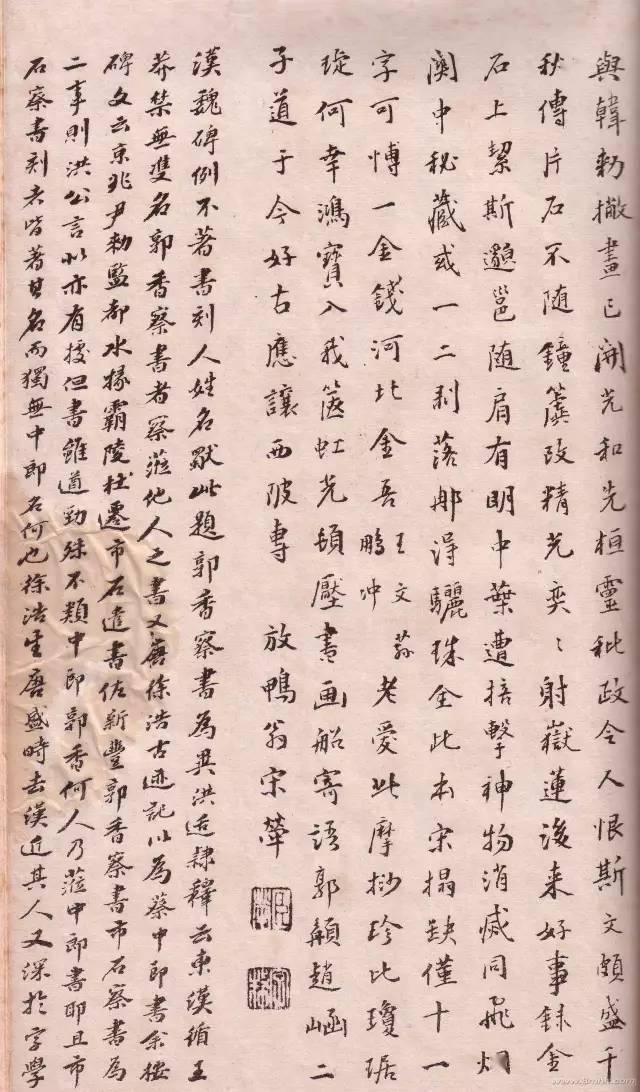 與韓勑撤畫已開光和先桓靈秕政令人恨斯文頗盛千
秋傳片石不隨鐘簴改精光奕〻射嶽蓮後來好事録金
石上挈斯邈邕隨肩有明中葉遭掊擊神物消滅同飛烟
關中秘藏或一二剥落那得驪珠全此本宋搨缺僅十一
字可慱一金錢河北金吾王文蓀鵬冲老愛此摩挱珍比瓊琚
琁何幸鴻寶入我箧虹光頓壓書画船寄語郭顛趙崡二
子道于今好古應讓西陂専 放鴨翁宋犖
漢魏碑例不著書刻人姓名獸此題郭香察書為異洪适隷釋云東漢循王
莽禁無雙名郭香察書者察蒞他人之書又舊徐浩古迹記以為蔡中郎書余極
碑文云京兆尹勑監都水掾霸陵杜遷市石遣書佐新豐郭香察書市石察書為
二事則洪公言似亦有據但書雖遒勁殊不類中郎郭香何人乃蒞中郎書耶且市
石察書刻者皆著其名而獨無中郎名何也徐浩生唐盛時去漢近其人又深於字學